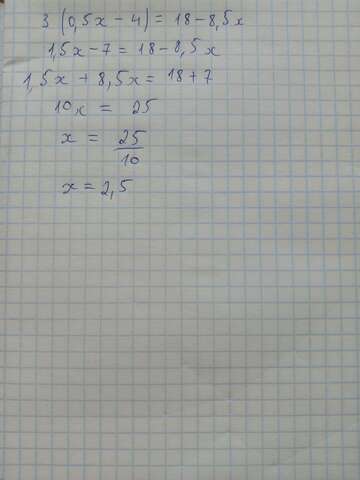 3 (0,5x - 4) = 18 - 8,5x
1,5x - 7 = 18 - 8,5x
1,5x + 8,5x = 18 + 7
10x = 25
x = 25/10
x = 2,5